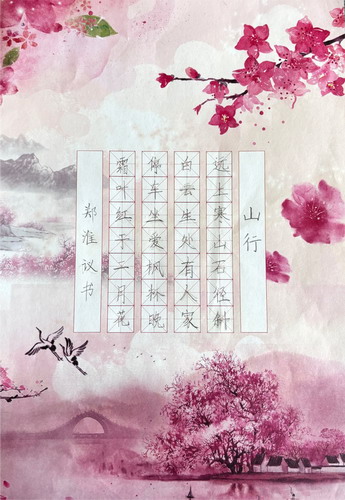 山行
远上寒山石径斜
白云生处有人家
停车坐爱枫林晚
霜叶红于二月花
郑淮议书